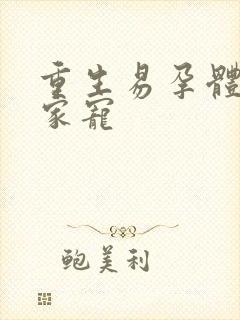 重生易孕體
家寵
鲍美利